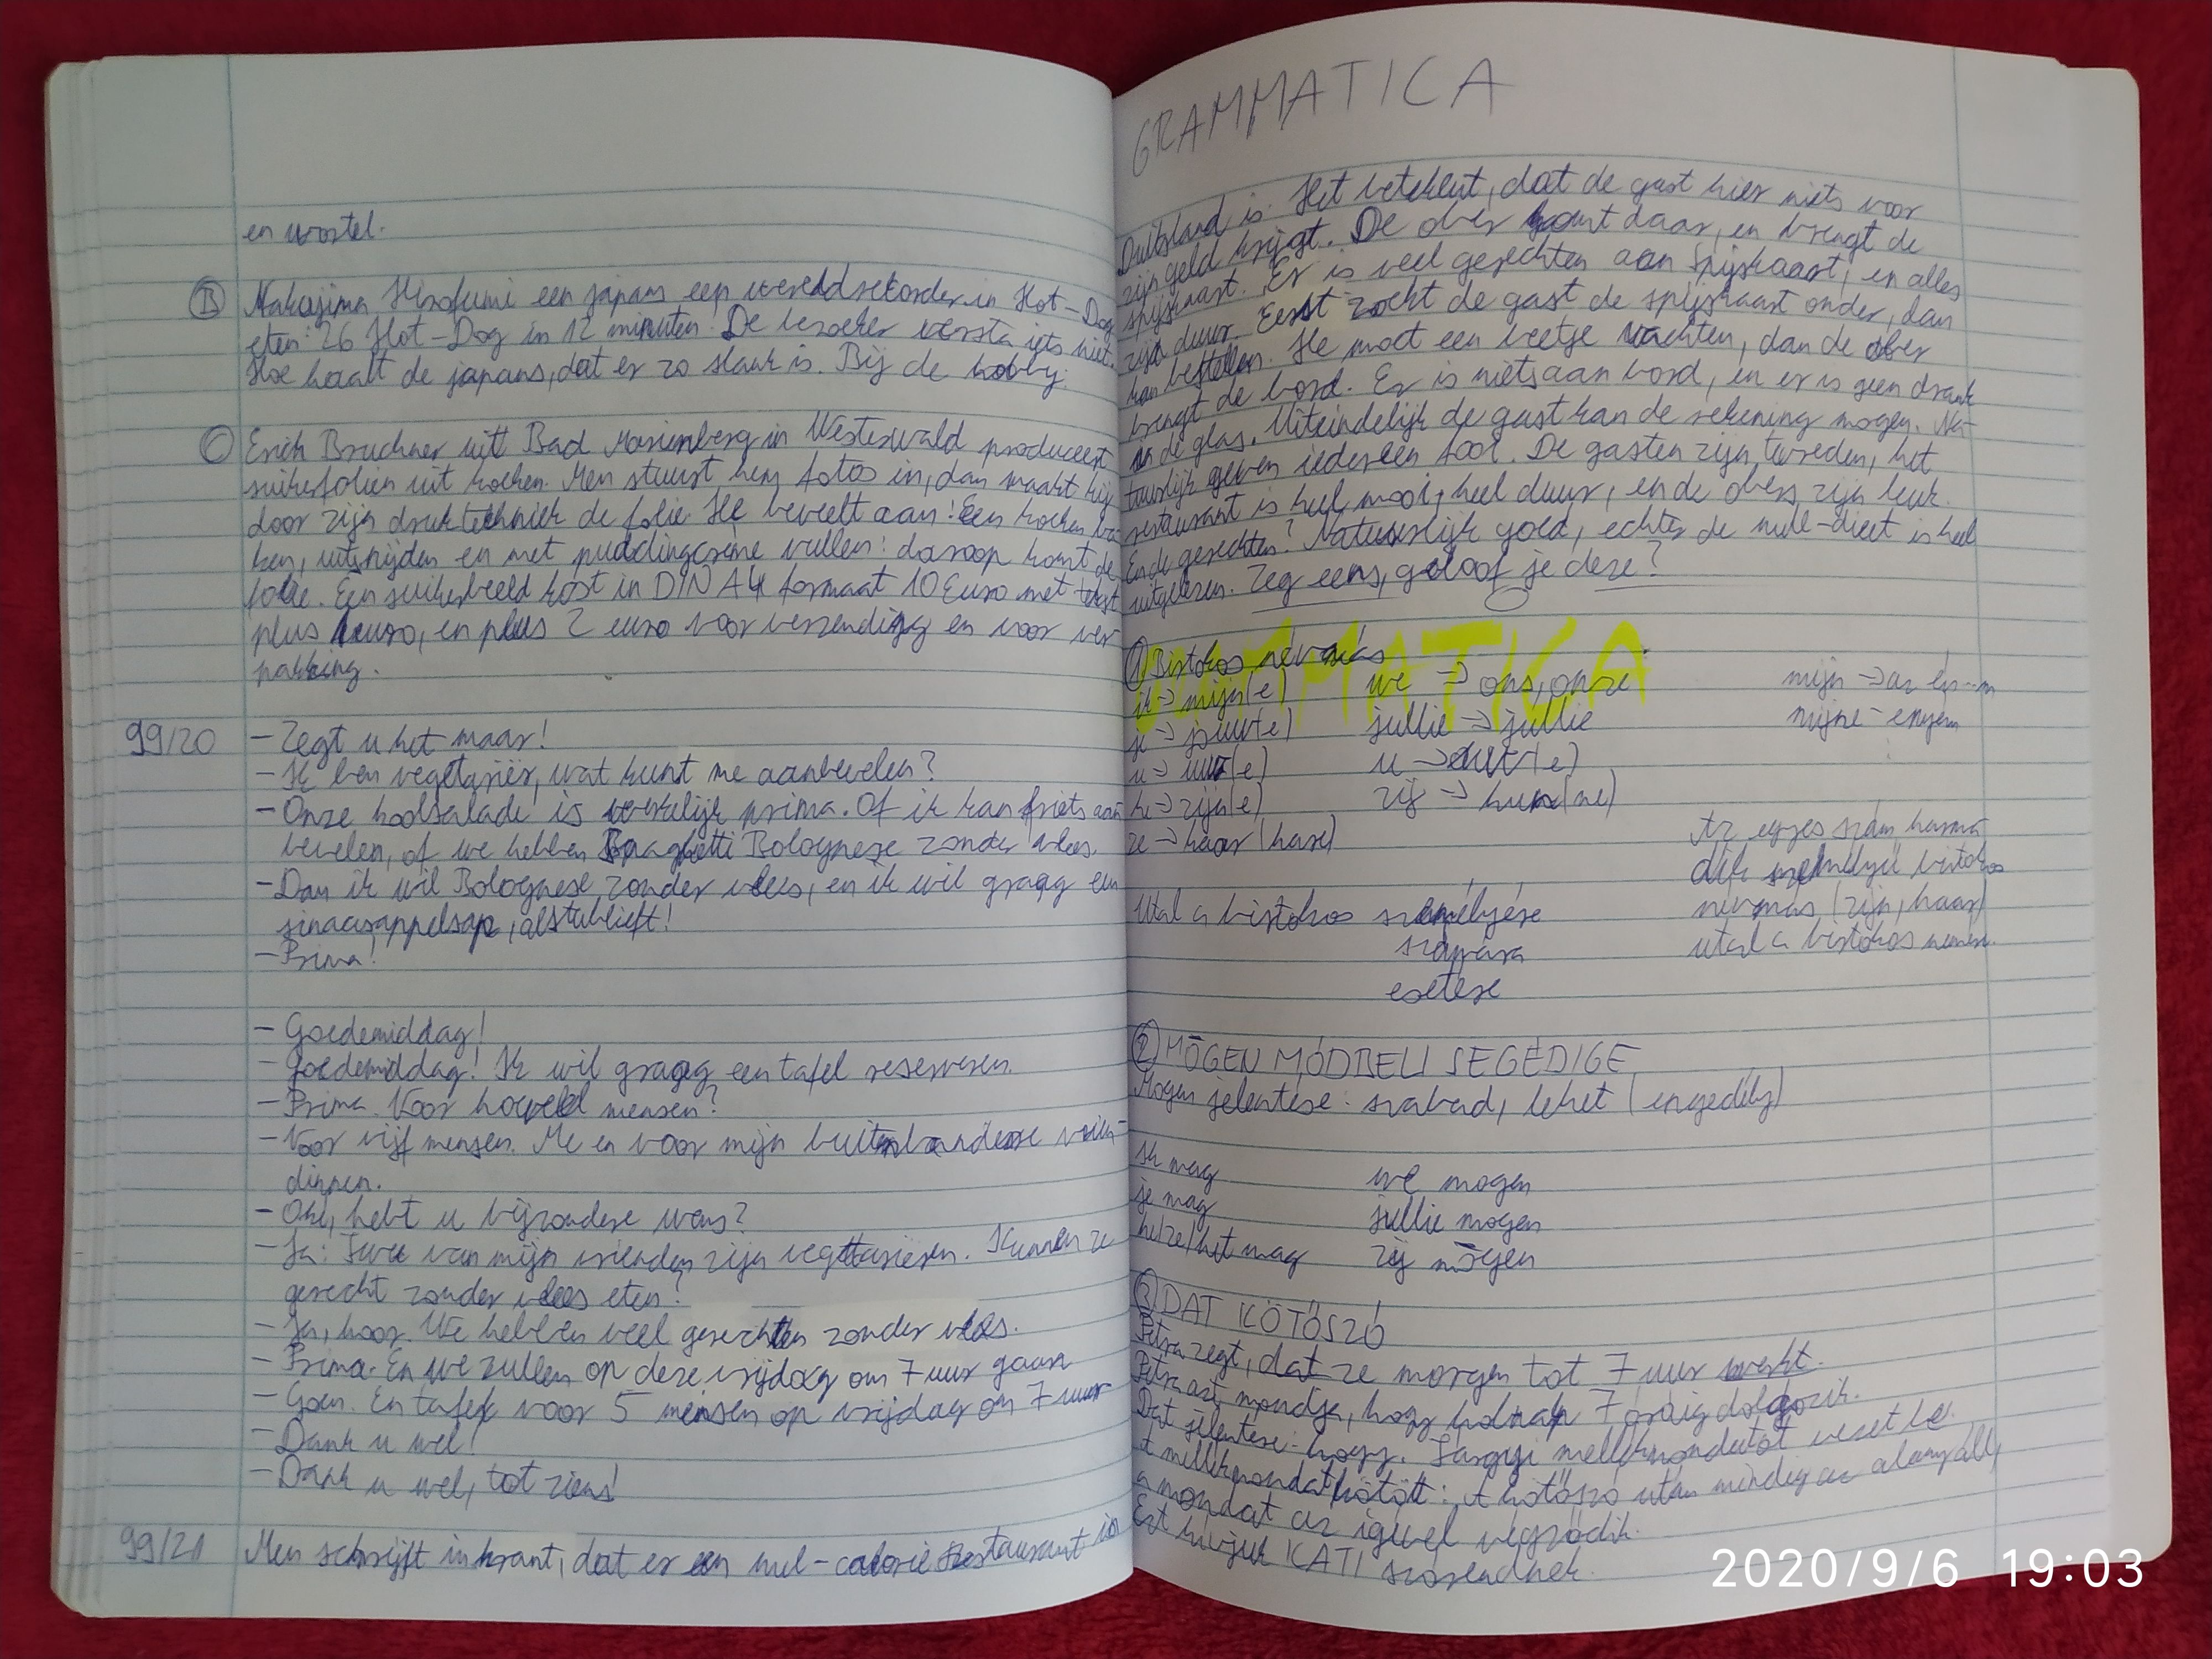 en wostel.
B Nakajima Hirofumi een japans een wereldrecorder in Hot-Dog
eten: 26 Hot-Dog in 12 minuten. De bezoeker versta iets niet.
Hoe haalt de japans, dat er zo slank is. Bij de hobby.
C Erich Bruchner uit Bad Marienberg in Westerwald produceert
suikerfolien uit koeken. Men stuurst hem fotos in, dan maakt hij
door zijn druktechniek de folie. He beveelt aan! Een koeken ba
ken, uitsnijden en met puddingcrème vullen: daroop komt de
folie. Een suikerbeeld kost in DIN A4 formaat 10 Euro met tekst
plus 1 euro, en plus 2 euro voor verzending en voor ver
pakking.
99/20 - Zegt u het maar!
- Ik ben vegetariër, wat kunt me aanbevelen?
- Onze koolsalade is werkelijk prima. Of ik kan friets aan
bevelen, of we hebben Spaghetti Bolognese zonder vlees.
- Dan ik wil Bolognese zonder vlees, en ik wil graag een
sinaasappelsap, alstublieft!
- Prima!
- Goedemiddag!
- Goedemiddag! Ik wil graag een tafel reserveren.
- Prima. Voor hoeveel mensen?
- Voor vijf mensen. Me en voor mijn buitenlandere vrien-
dinnen.
- Oké, hebt u bijzondere wens?
- Ja: Twee van mijn vrienden zijn vegetariëren. Kunnen ze
gerecht zonder vlees eten?
- Ja, hoor. We hebben veel gerechten zonder vlees.
- Prima. En we zullen op deze vrijdag om 7 uur gaan
- Goen. En tafel voor 5 mensen op vrijdag om 7 uur
- Dank u wel!
- Dank u wel, tot ziens!
99/21 Men schrijft in krant, dat er een nul-calorie restaurant in
GRAMMATICA
Duitsland is. Het betekent, dat de gast hier niets voor
zijn geld krijgt. De ober komt daar, en brengt de
spijskaart. Er is veel gerechten aan spijskaart, en alles
zijn duur. Eerst zoekt de gast de spijskaart onder, dan
kan bestellen. He moet een beetje wachten, dan de ober
brengt de bord. Er is niets aan bord, en er is geen drank
in de glas. Uiteindelijk de gast kan de rekening mogen. Na-
tuurlijk geven iedereen fooi. De gasten zijn tevreden, het
restaurant is heel mooi, heel duur, en de obers zijn leuk.
En de gerechten? Natuurlijk goed, echter de null-dieet is heel
uitgelezen. Zeg eens, geloof je deze?
1 Birtokos névmás
ik → mijn(e) we → ons, onze mijn → az én...m
je → jouw(e) jullie → jullie mijne - enyém
u → uw(e) u → uw(e)
he → zijn(e) zij → hun(ne)
ze → haar (hare)
Az egyes szám harma
dik személyű birtokos
névmás (zijn, haar)
utal a birtokos nemére.
Utal a birtokos személyére
számára
esetére
2 MOGEN MÓDBELI SEGÉDIGE
Mogen jelentése: szabad, lehet (engedély)
Ik mag we mogen
je mag jullie mogen
he/ze/het mag zij mogen
3 DAT KÖTŐSZÓ
Petra zegt, dat ze morgen tot 7 uur werkt.
Petra azt mondja, hogy holnap 7 óráig dolgozik.
Dat jelentése: hogy. Tárgyi mellékmondatot vezet be.
A mellékmondat kötött: A kötőszó után mindig az alany áll,
a mondat az igével végződik.
Ezt hívjuk KATI szórendnek.
2020/9/6 19:03